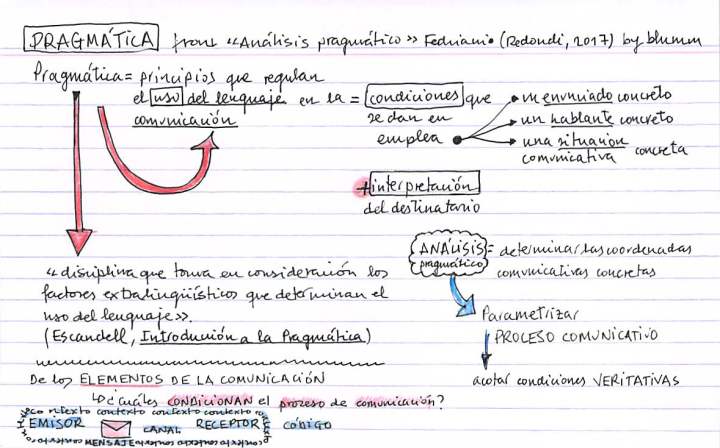 PRAGMÁTICA from «Análisis pragmático» Federiani (Redondi, 2017) by blumm
Pragmática = principios que regulan
el uso del lenguaje en la
comunicación
= condiciones que
se dan en
emplea
un enunciado concreto
un hablante concreto
una situación
comunicativa concreta
+ interpretación
del destinatario
« disciplina que toma en consideración los
factores extralingüísticos que determinan el
uso del lenguaje».
(Escandell, Introducción a la Pragmática)
ANÁLISIS = determinar las coordenadas
pragmático comunicativas concretas
Parametrizar
PROCESO COMUNICATIVO
acotar condiciones VERITATIVAS
De los ELEMENTOS DE LA COMUNICACIÓN
↳ ¿cuáles CONDICIONAN el proceso de comunicación?
contexto contexto contexto contexto
EMISOR CANAL RECEPTOR CÓDIGO
MENSAJE